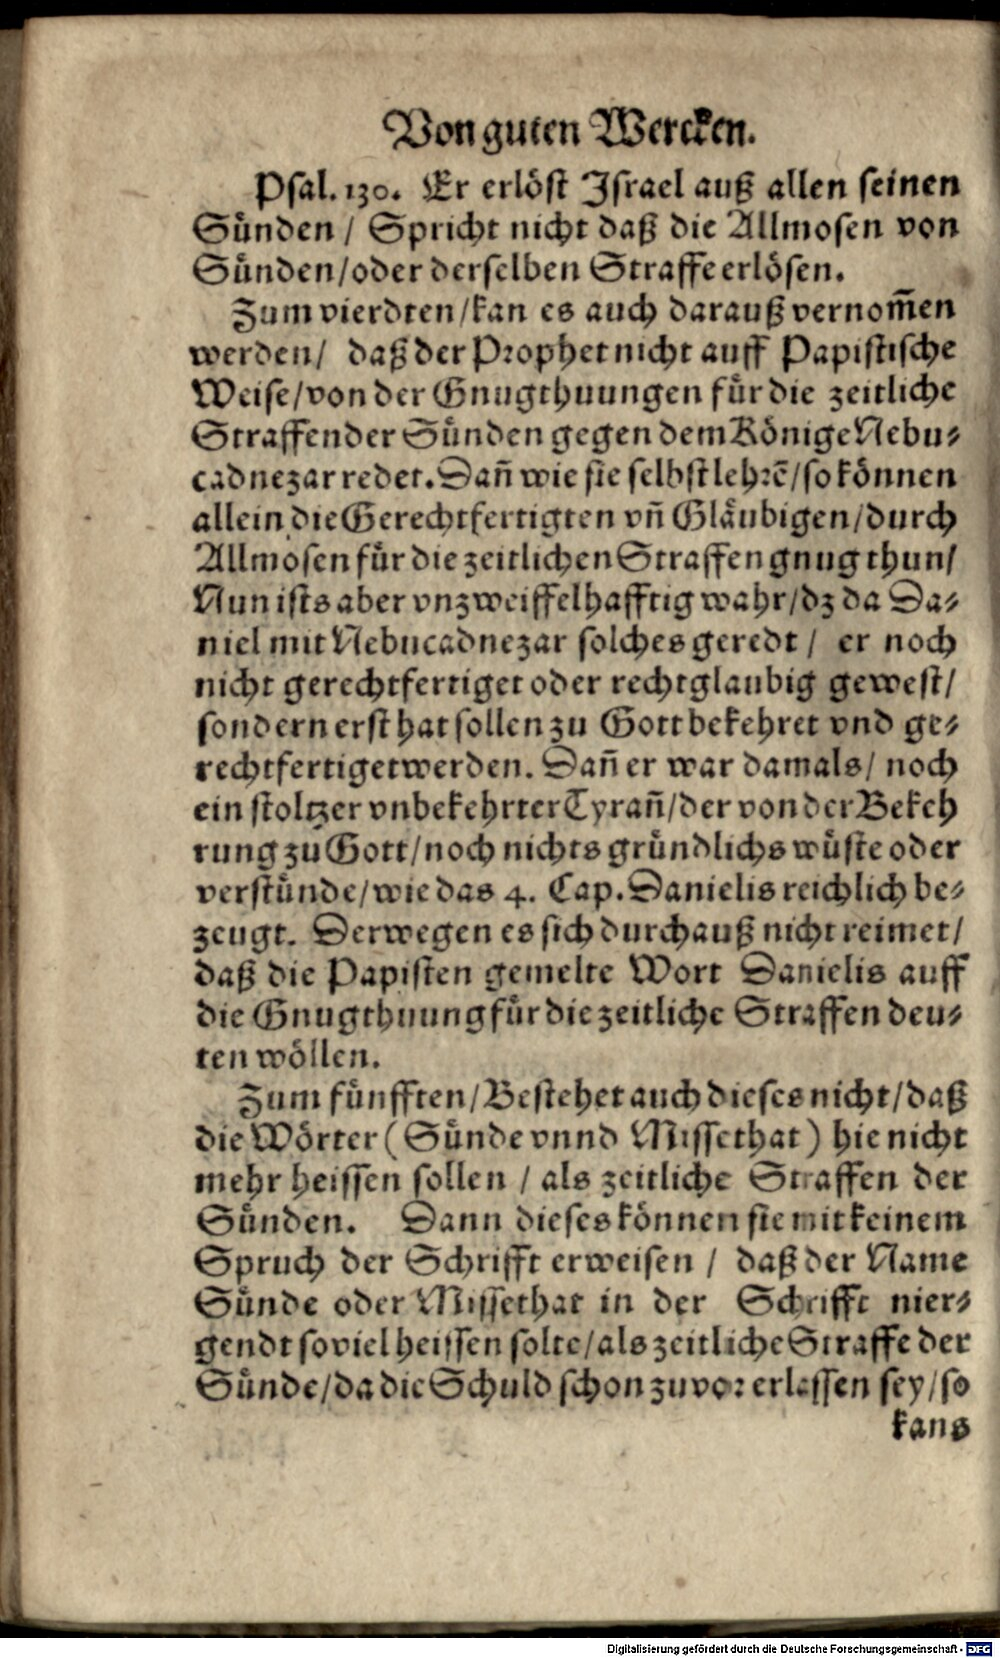 Von guten Wercken.
Psal. 130. Er erlöst Israel auß allen seinen
Sünden / Spricht nicht daß die Allmosen von
Sünden / oder derselben Straffe erlösen.
Zum vierdten / kan es auch darauß vernom̃en
werden / daß der Prophet nicht auff Papistische
Weise / von der Gnugthuungen für die zeitliche
Straffen der Sünden gegen dem Könige Nebu⸗
cadnezar redet. Dañ wie sie selbst lehrẽ / so können
allein die Gerechtfertigten vñ Gläubigen / durch
Allmosen für die zeitlichen Straffen gnug thun /
Nun ists aber vnzweiffelhafftig wahr / dz da Da⸗
niel mit Nebucadnezar solches geredt / er noch
nicht gerechtfertiget oder rechtglaubig gewest /
sondern erst hat sollen zu Gott bekehret vnd ge⸗
rechtfertiget werden. Dañ er war damals / noch
ein stoltzer vnbekehrter Tyrañ / der von der Bekeh
rung zu Gott / noch nichts gründlichs wüste oder
verstünde / wie das 4. Cap. Danielis reichlich be⸗
zeugt. Derwegen es sich durchauß nicht reimet /
daß die Papisten gemelte Wort Danielis auff
die Gnugthuung für die zeitliche Straffen deu⸗
ten wöllen.
Zum fünfften / Bestehet auch dieses nicht / daß
die Wörter (Sünde vnnd Missethat) hie nicht
mehr heissen sollen / als zeitliche Straffen der
Sünden. Dann dieses können sie mit keinem
Spruch der Schrifft erweisen / daß der Name
Sünde oder Missethat in der Schrifft nier⸗
gendt soviel heissen solte / als zeitliche Straffe der
Sünde / da die Schuld schon zuvor erlassen sey / so
kans
Digitalisierung gefördert durch die Deutsche Forschungsgemeinschaft - DFG